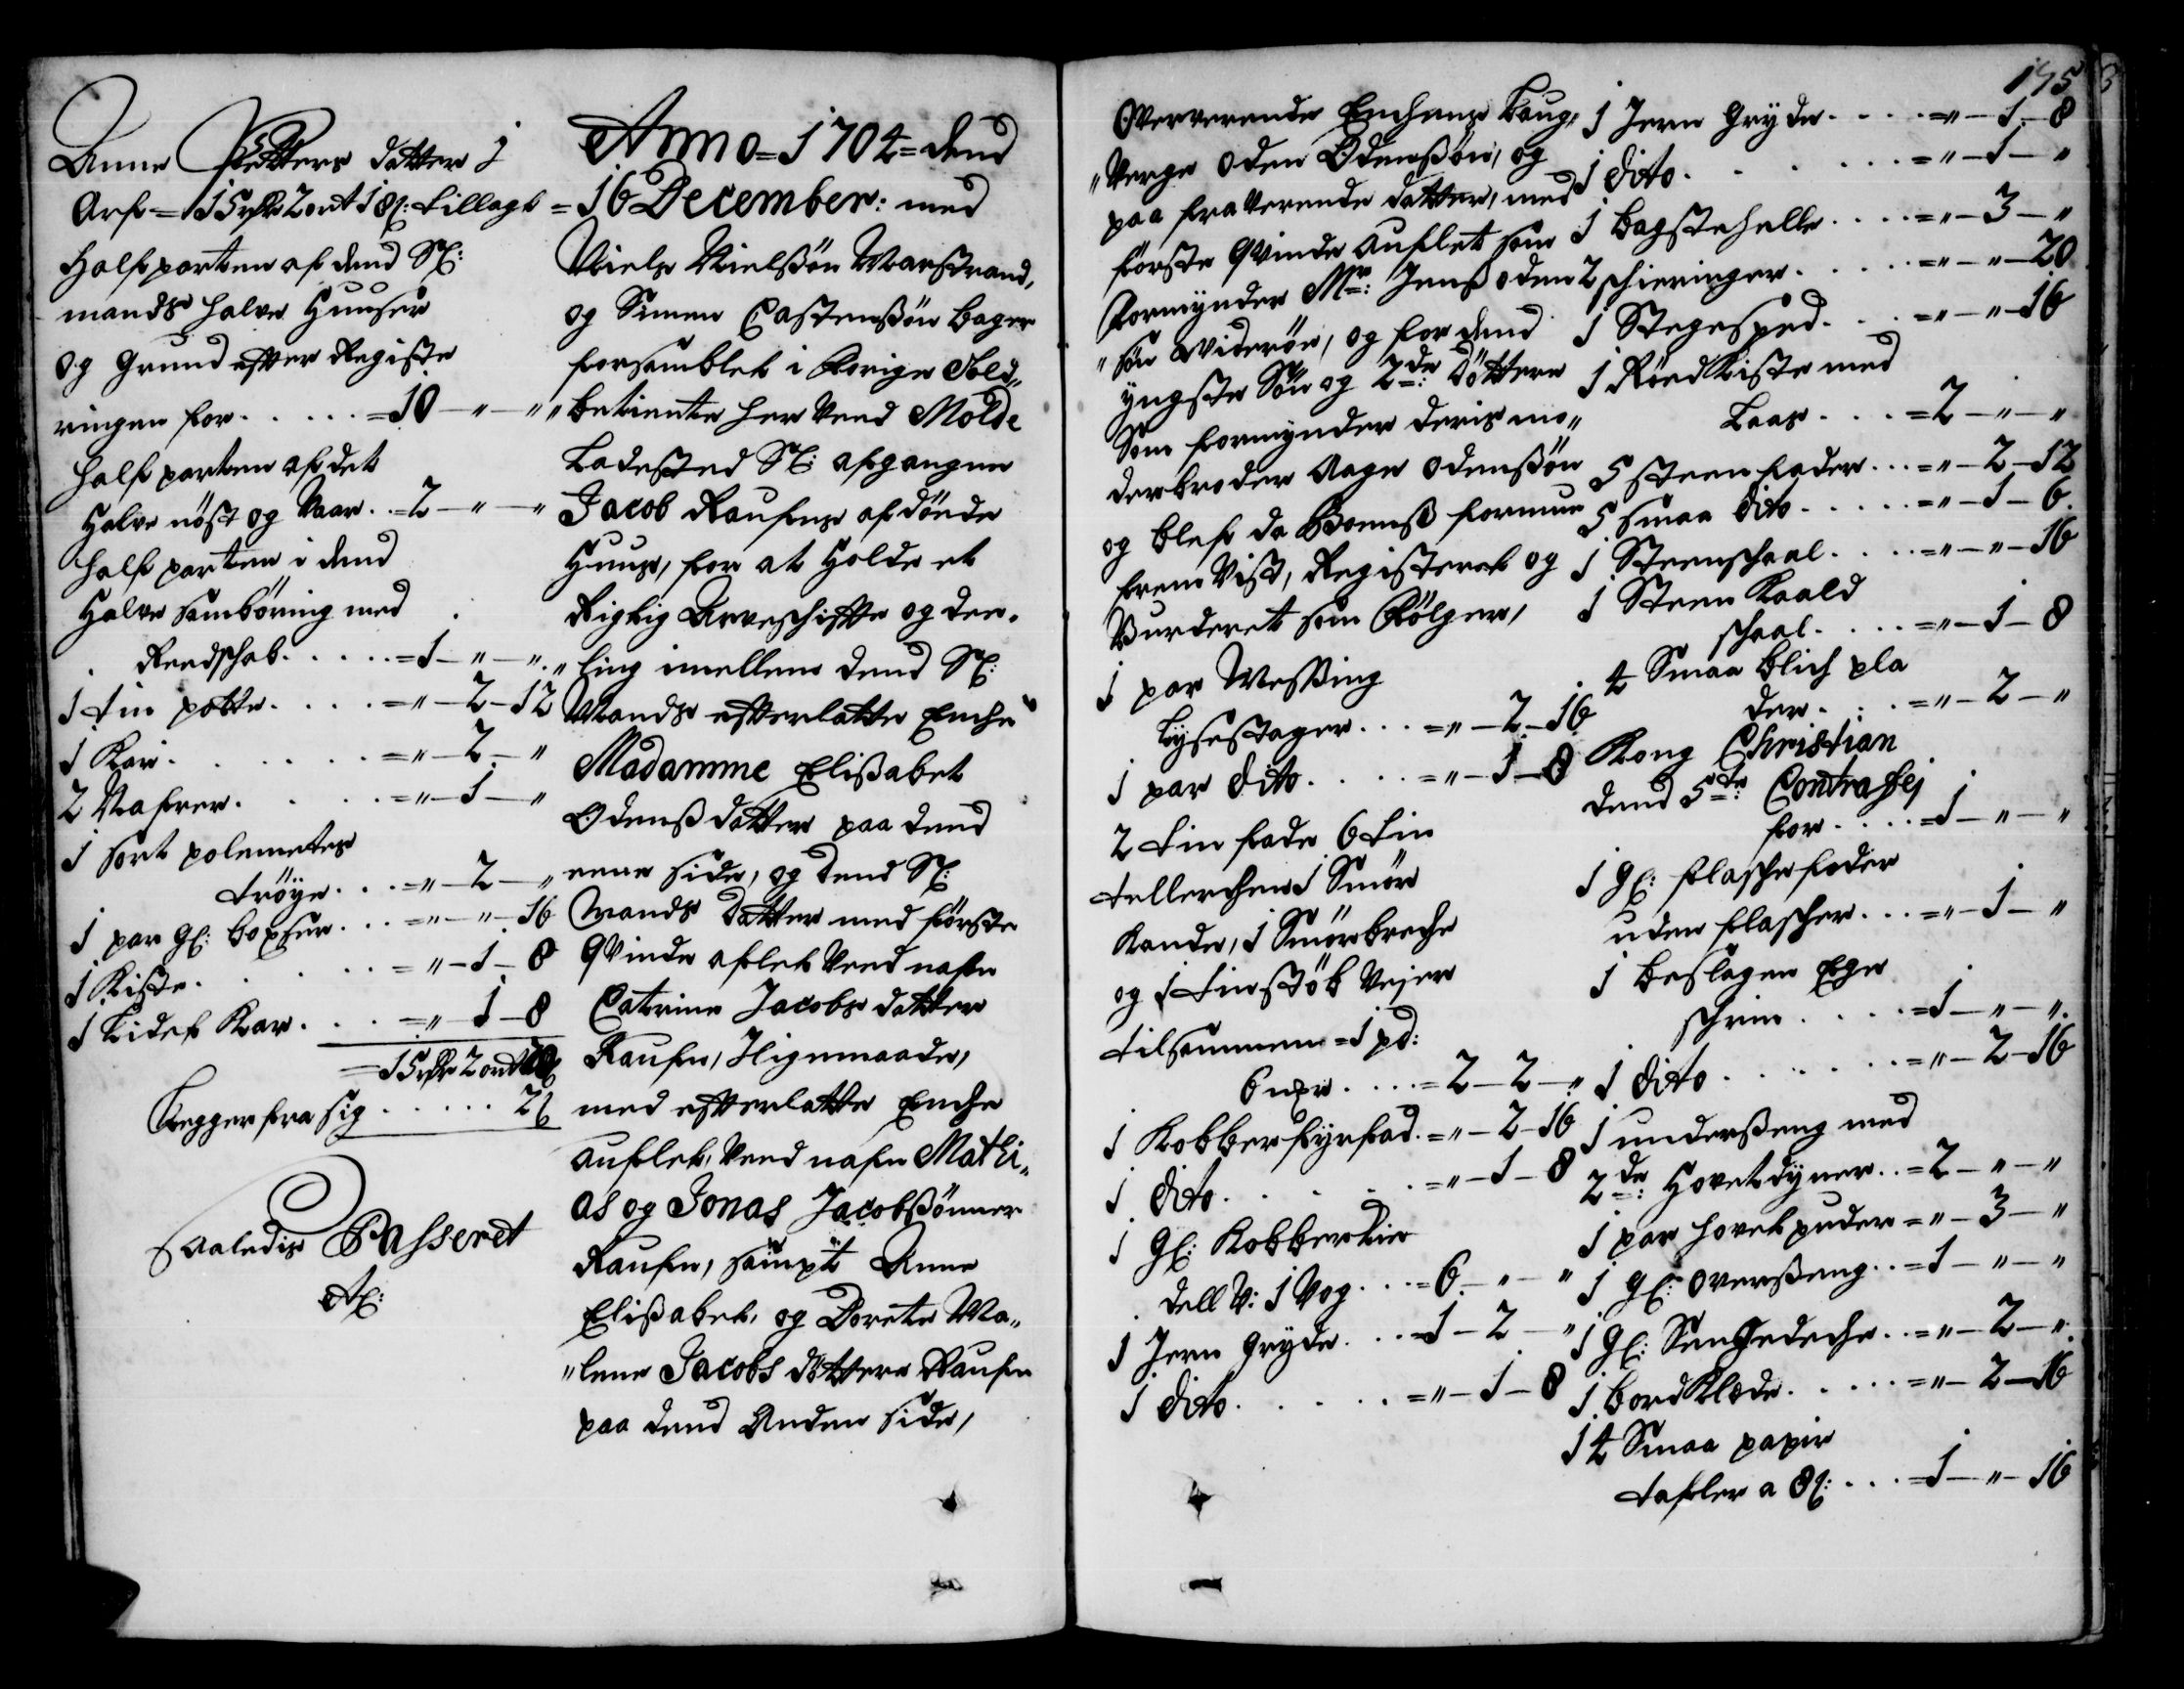 Anne Petters datter i
Arf = 15 rdr 2 ort 18 s: tillagt
Halfparten af dend Sl:
mands halve Huuser
og Grund efter Registe
ringen for . . . . . =10 — " — "
Half parten af det
Halve nöst og Vaar . . =2 — " — "
Half parten i dend
Halve sambøring med
Reedschab . . . . . =1 — " — "
1 tin potte . . . . = " — 2 — 12
1 Kar . . . . . . = " — 2 — "
2 Nafrer . . . . . = " — 1 — "
1 sort polemetes
tröye . . . = " — 2 — "
1 par gl: boxsur . . . = " — " — 16
1 Kiste . . . . . = " — 1 — 8
1 Lidet Kar . . . = " — 1 — 8
=15 rdr 2 ort
Legger fra sig . . . . . 2 s
Saaledis Passeret
Al:
Anno = 1704 = dend
=16 December: med
Niels Nielssön Marstrand,
og Simen Castenssön bager
forsamblet i Forige Told„
„betiente her Ved Molde
Ladested Sl: afgangne
Jacob Raufns afdöde
Huus, for at Holde et
Rigtig Arveschifte og dee„
„ling imellem dend Sl:
Mands efterlatte Enche
Madamme Elissabet
Odenss datter paa dend
eene side, og dend Sl:
Mands datter med förste
Qvinde aflet Ved nafn
Catrine Jacobs datter
Raufn, Ligemaade,
med efterlatte Enche
auflet, Ved nafn Mathi„
as og Jonas Jacobssönner
Raufn, sampt Anne
Elissabet, og Dorete Ma„
„lene Jacobs döttere Raufn
paa dend Anden side,
175
Oververende Enchens Laug„
„Verge Oden Odenssön, og
paa fraverende datter, med
förste Qvinde auflet som
Formynder Mr: Jenss Oden
„sön Widerön, og for dend
yngste Sön og 2de: döttere
Som formynder deris mo„
derbroder Aage Odenssön
og blef da Boenss formue
frem Vist, Registeret og
Vurderet som Fölger,
1 par Messing
Lysestager . . . = " — 2 — 16
1 par dito . . . . = " — 1 — 8
2 tin fade 6 tin
tellerchen 1 Smör
Kande, 1 Smörbreche
og 1 tinstöb Vejer
tilsammen = 1 pd:
6 mrr . . . . =2 — 2 — "
1 Kobber fyrfad . = " — 2 — 16
1 dito . . . . . = " — 1 — 8
1 gl: Kobberkie
dell V: 1 Vog . . . =6 — " — "
1 Jern gryde . . . =1 — 2 — "
1 dito . . . . . = " — 1 — 8
1 Jern Gryde . . . . = " — 1 — 8
1 dito . . . . . = " — 1 — "
1 Bagstehelle . . . . = " — 3 — "
2 schieringer . . . . . = " — " — 20
1 Stegesped . . . = " — " — 16
1 Röed Kiste med
Laas . . . . =2 — " — "
5 steen fader . . . = " — 2 — 12
5 smaa dito . . . . . = " — 1 — 6
1 Steenschaal . . . . = " — " — 16
1 Steen Kaald
schaal . . . . = " — 1 — 8
4 Smaa blich pla
der . . . . = " — 2 — "
Kong Christian
dend 5te: Contrafej
for . . . . =1 — " — "
1 gl: flasche foder
uden flascher . . . = " — 1 — "
1 beslagen Ege
schrin . . . . =1 — " — "
1 dito . . . . . . = " — 2 — 16
1 undersseng med
2de: Hovetdyner . . =2 — " — "
1 par Hovet puder = " — 3 — "
1 gl: overssseng . . =1 — " — "
1 gl: Sengedeche . . = " — 2 — "
1 bord Klede . . . . . = " — 2 — 16
14 Smaa papir
tafler a 8 s: . . . =1 — " — 16